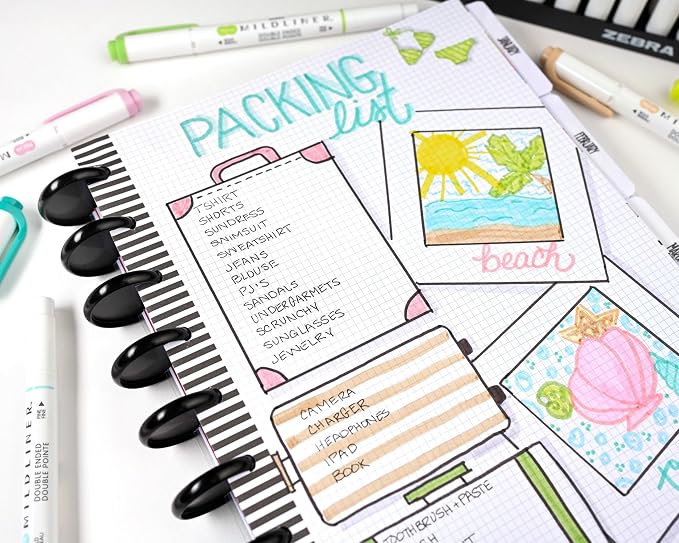 MILDLINER™
ZEBRA
MILDLI
JANUARY
FEBRUARY
PACKING
list
TSHIRT
SHORTS
SUNDRESS
SWIMSUIT
SWEATSHIRT
JEANS
BLOUSE
PJ'S
SANDALS
UNDERGARMETS
SCRUNCHY
SUNGLASSES
JEWELRY
beach
CAMERA
CHARGER
HEADPHONES
IPAD
BOOK
TOOTHBRUSH + PASTE
MILDLINER™
DOUBLE ENDED
DOUBLE POINTE
FINE
FINE